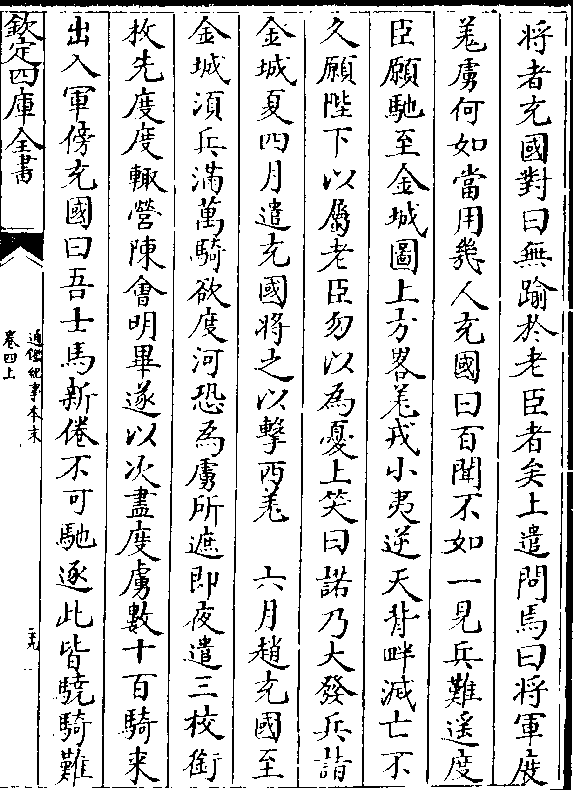 將者充國對曰無踰於老臣者矣上遣問焉曰將軍度
羌虜何如當用幾人充國曰百聞不如一見兵難遥度
臣願馳至金城圖上方畧羌戎小夷逆天背畔滅亡不
久願陛下以屬老臣勿以為憂上笑曰諾乃大發兵詣
金城夏四月遣充國將之以擊西羌 六月趙充國至
金城湏兵滿萬騎欲度河恐為虜所遮即夜遣三校銜
枚先度度輒營陳會明畢遂以次盡度虜數十百騎来
出入軍傍充國曰吾士馬新倦不可馳逐此皆驍騎難
欽定四庫全書
通鑑紀事本末
卷四上